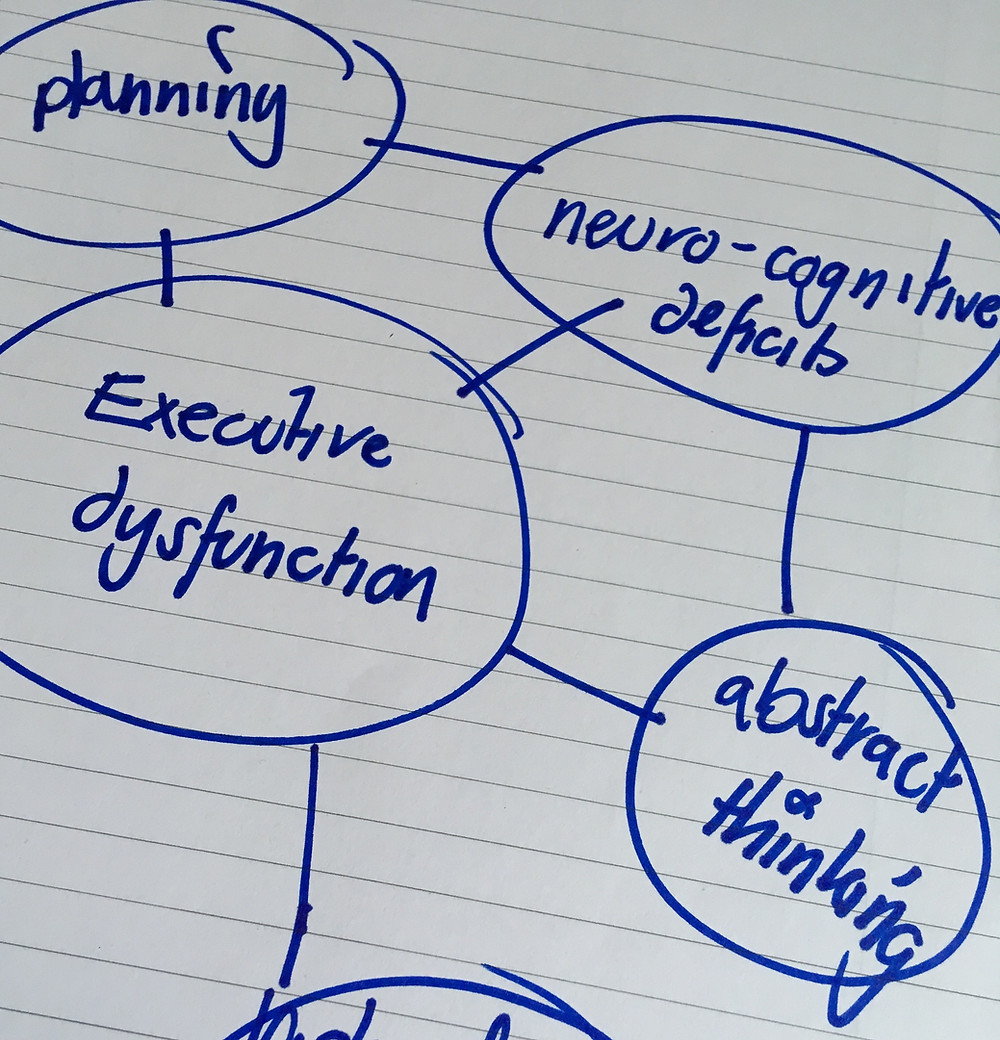 planning
neuro-cognitive
deficits
Executive
dysfunction
abstract
thinking